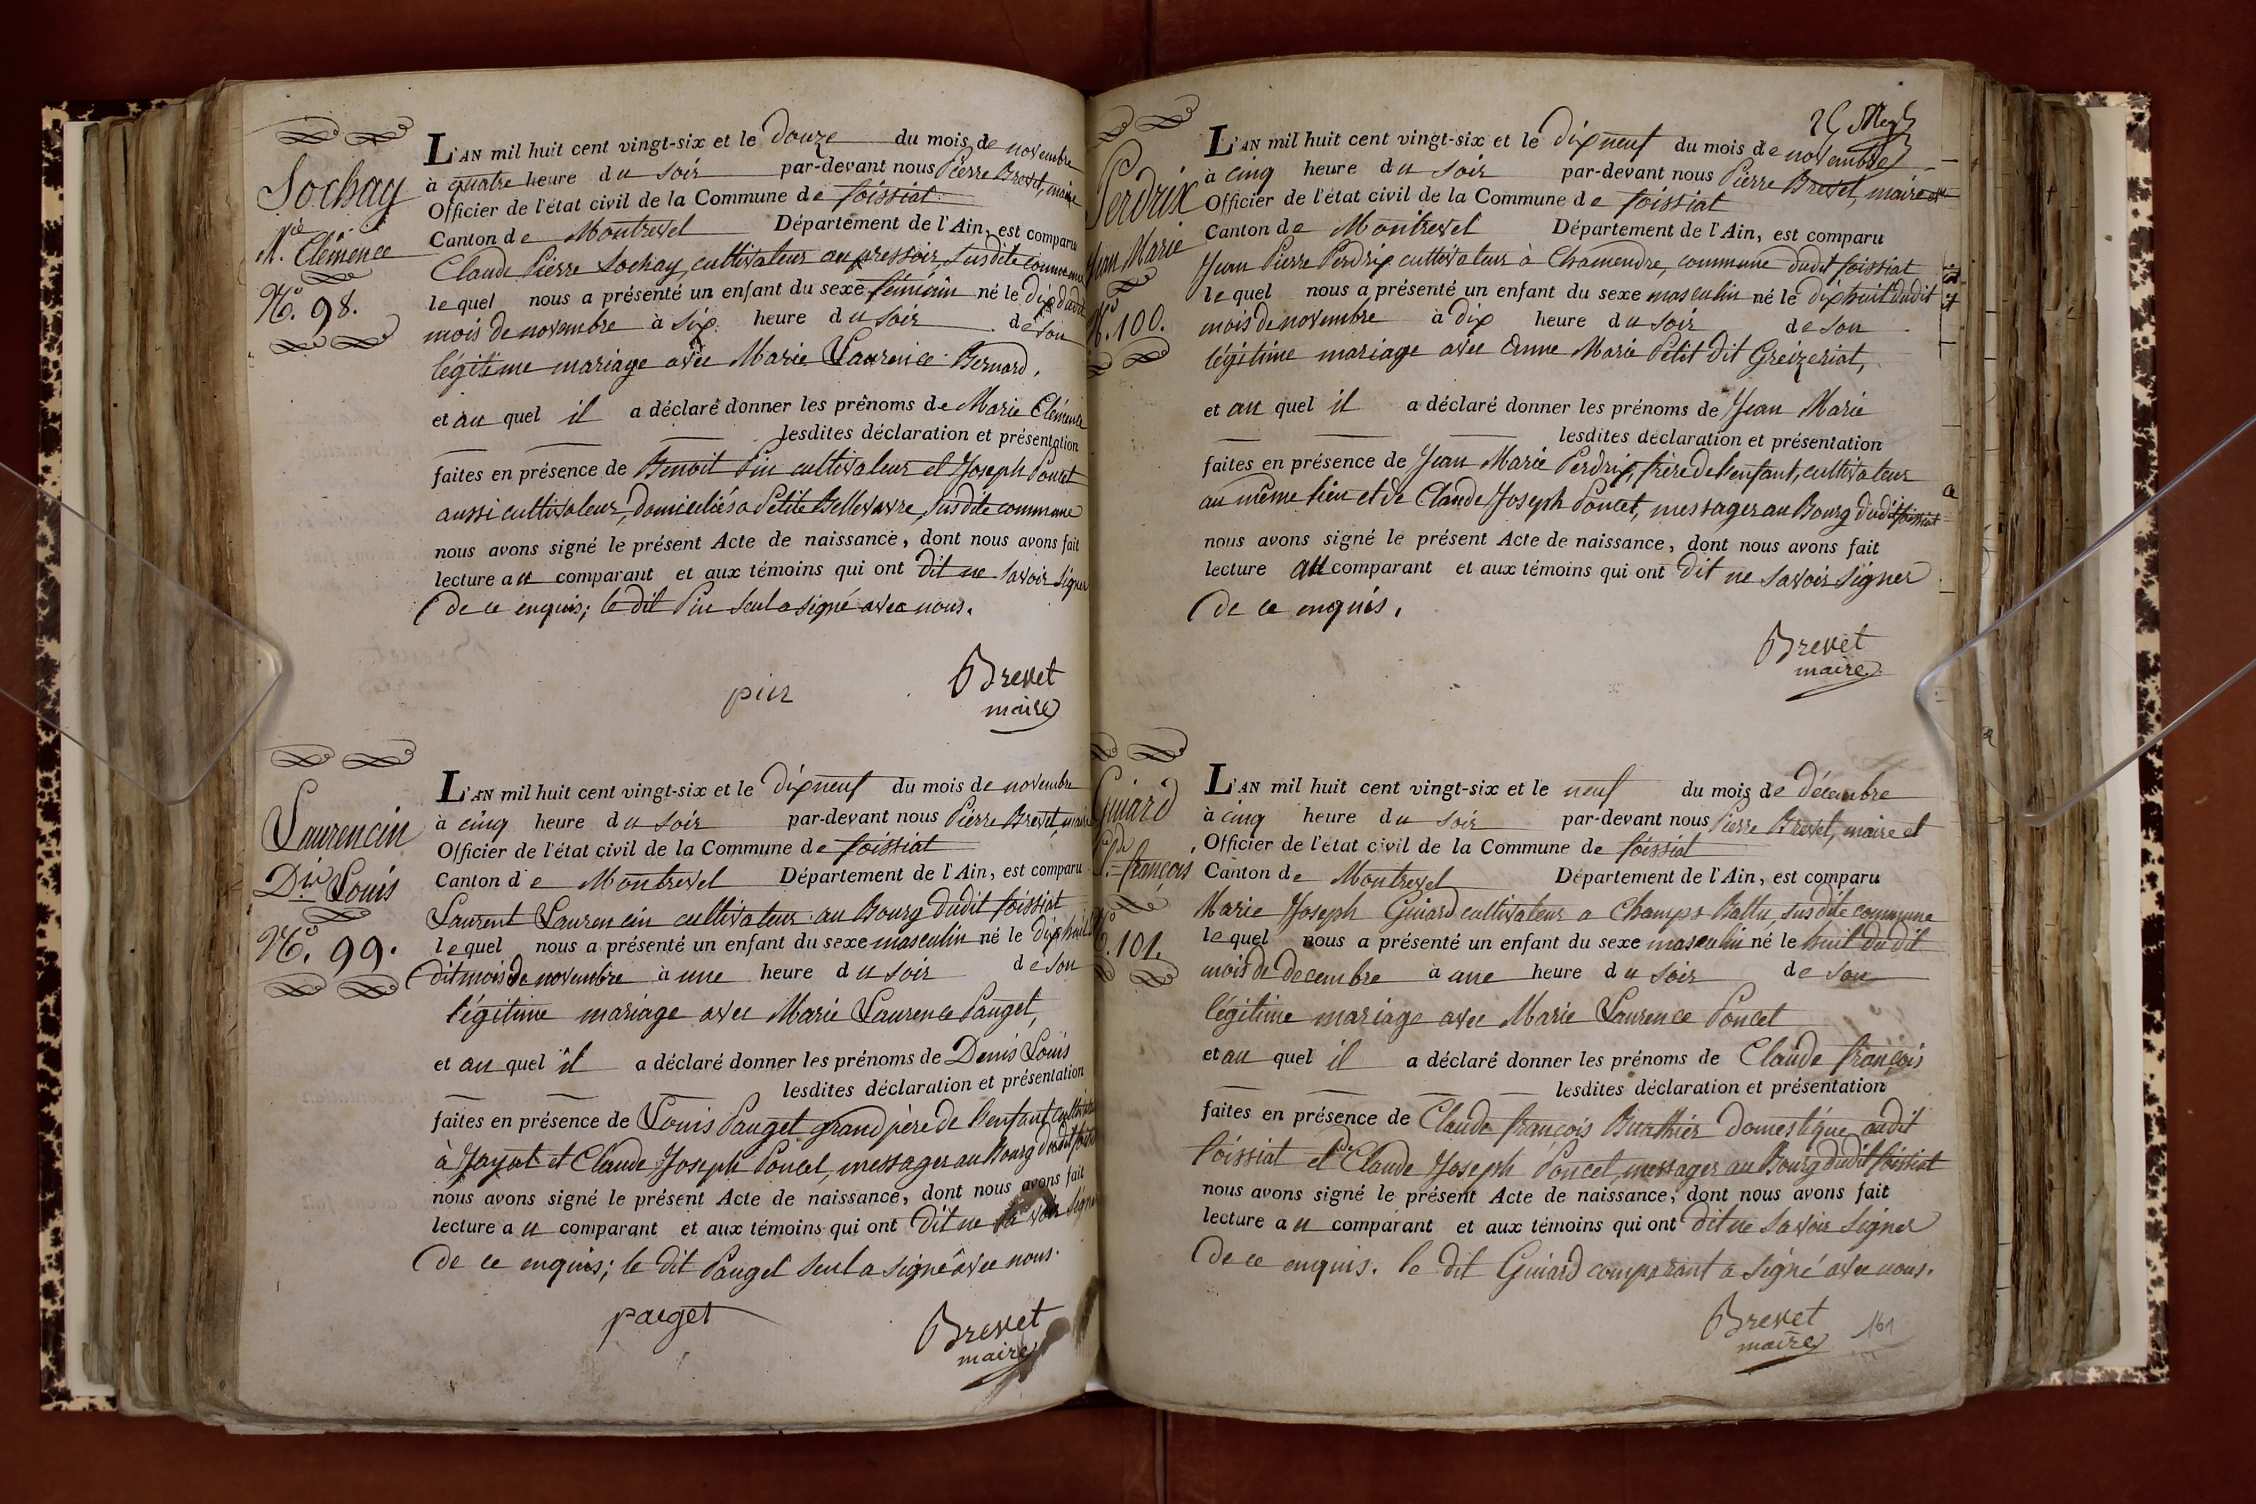 Sochay
Mie Clémence
No. 98.
L'AN mil huit cent vingt-six et le douze du mois de novembre
à quatre heure du soir par-devant nous Pierre Brevet, maire
Officier de l'état civil de la Commune de foissiat
Canton de Montrevel Département de l'Ain, est comparu
Claude Pierre Sochay, cultivateur au pressoir, susdite commune
lequel nous a présenté un enfant du sexe féminin né le dix dudit
mois de novembre à six heure du soir de son
légitime mariage avec Marie Laurence Bernard,
et au quel il a déclaré donner les prénoms de Marie Clémence
lesdites déclaration et présentation
faites en présence de Benoit Piu cultivateur et Joseph Poncet
aussi cultivateur, domiciliés a Petite Bellevavre, susdite commune
nous avons signé le présent Acte de naissance, dont nous avons fait
lecture au comparant et aux témoins qui ont dit ne savoir signer
de ce enquis; le dit Piu seul a signé avec nous.
Brevet
maire
Laurencin
Dis Louis
No. 99.
L'AN mil huit cent vingt-six et le dix neuf du mois de novembre
à cinq heure du soir par-devant nous Pierre Brevet, maire
Officier de l'état civil de la Commune de foissiat
Canton de Montrevel Département de l'Ain, est comparu
Laurent Laurencin cultivateur au Bourg dudit foissiat
lequel nous a présenté un enfant du sexe masculin né le dix huit
dit mois de novembre à une heure du soir de son
légitime mariage avec Marie Laurence Pauget,
et au quel il a déclaré donner les prénoms de Denis Louis
lesdites déclaration et présentation
faites en présence de Louis Pauget grand père de l'enfant, cultivateur
à Jayat et Claude Joseph Poncet, messager au Bourg dudit
nous avons signé le présent Acte de naissance, dont nous avons fait
lecture au comparant et aux témoins qui ont dit ne savoir signer
de ce enquis; le dit Pauget seul a signé avec nous.
pauget
Brevet
maire
Perdrix
Jean Marie
No. 100.
L'AN mil huit cent vingt-six et le dix neuf du mois de novembre
à cinq heure du soir par-devant nous Pierre Brevet, maire et
Officier de l'état civil de la Commune de foissiat
Canton de Montrevel Département de l'Ain, est comparu
Jean Pierre Perdrix cultivateur à Chamendre, commune dudit foissiat
lequel nous a présenté un enfant du sexe masculin né le dix huit dudit
mois de novembre à dix heure du soir de son
légitime mariage avec Anne Marie Petit dit Greizeriat,
et au quel il a déclaré donner les prénoms de Jean Marie
lesdites déclaration et présentation
faites en présence de Jean Marie Perdrix, frère de l'enfant, cultivateur
au même lieu et de Claude Joseph Poncet, messager au Bourg dudit foissiat
nous avons signé le présent Acte de naissance, dont nous avons fait
lecture au comparant et aux témoins qui ont dit ne savoir signer
de ce enquis.
Brevet
maire
Guiard
Cde françois
101.
L'AN mil huit cent vingt-six et le neuf du mois de décembre
à cinq heure du soir par-devant nous Pierre Brevet, maire et
Officier de l'état civil de la Commune de foissiat
Canton de Montrevel Département de l'Ain, est comparu
Marie Joseph Guiard cultivateur a Champs Battu, susdite commune
lequel nous a présenté un enfant du sexe masculin né le huit du dit
mois de decembre à une heure du soir de son
légitime mariage avec Marie Laurence Poncet
et au quel il a déclaré donner les prénoms de Claude françois
lesdites déclaration et présentation
faites en présence de Claude françois Buathier domestique audit
foissiat et de Claude Joseph Poncet, messager au Bourg dudit foissiat
nous avons signé le présent Acte de naissance, dont nous avons fait
lecture au comparant et aux témoins qui ont dit ne savoir signer
de ce enquis. le dit Guiard comparant a signé avec nous.
Brevet
maire
161